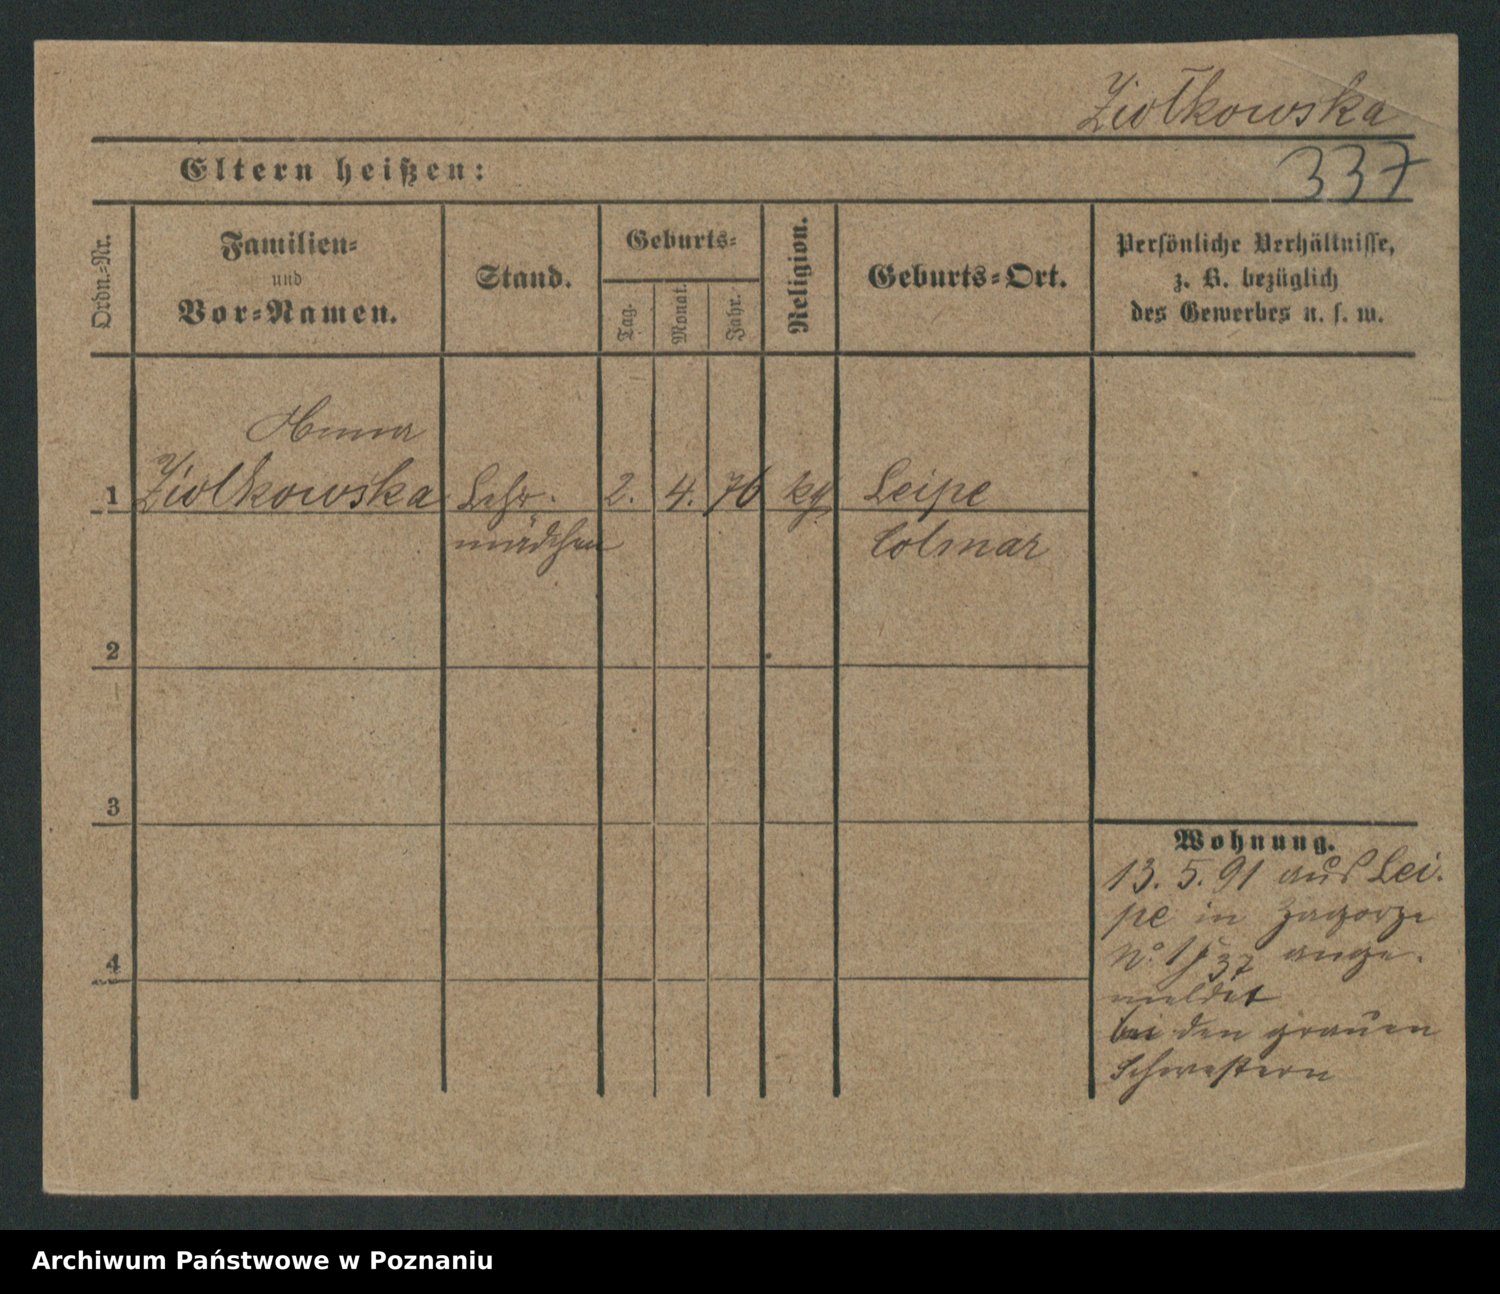 Ziołkowska
337
Eltern heißen:
Ordn.-Nr.
Familien-
und
Vor-Namen.
Stand.
Geburts-
Tag.
Monat.
Jahr.
Religion.
Geburts-Ort.
Persönliche Verhältnisse,
z. B. bezüglich
des Gewerbes u. s. w.
1
Ziolkowska
Lehr-
mädchen
2.
4.
76
kg
Leipe
Colmar
2
3
4
Wohnung.
13. 5. 91 aus Lei-
pe in Zagorze
No. ange-
meldet
bei den grauen
Schwestern
Archiwum Państwowe w Poznaniu